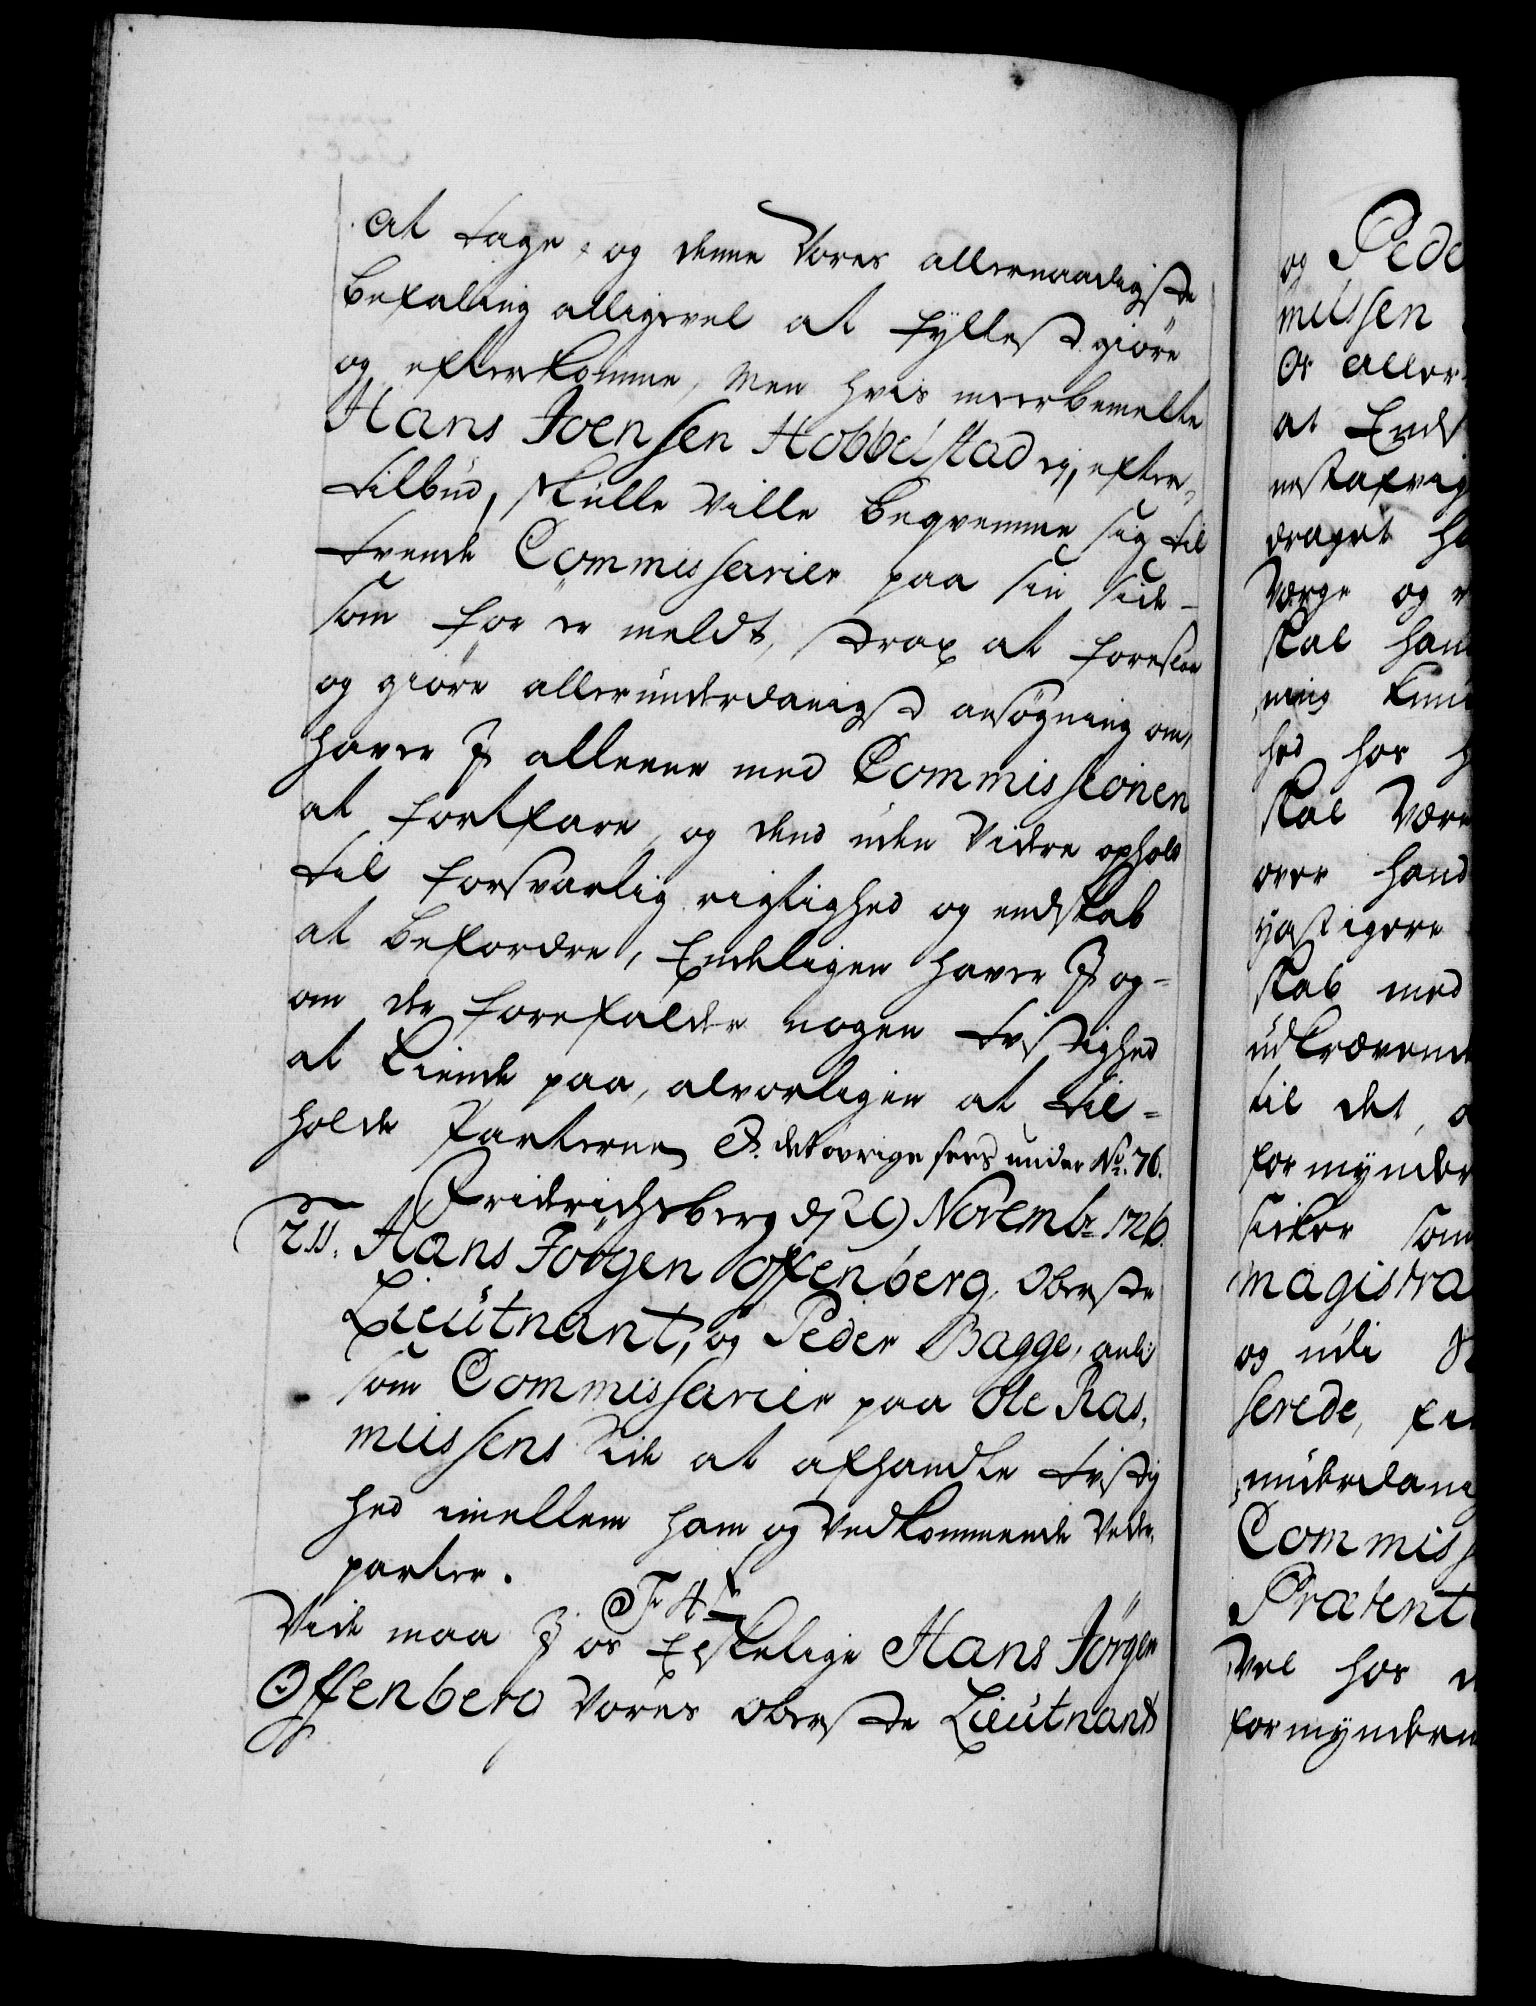 at tage, og denne Vores allernaadigste
befaling alligevel at fyllest giöre
og efterkomme, Men hvis meerbemelte
Hans Joensen Hobbelstad ej, efter
tilbud, skulle Ville beqvemme sig til
tvende Commissarier paa sin side
som for er meldt, strax at foreslaae
og giöre allerunderdanigst ansögning om,
haver I alleene med Commissionen
at fortfare, og dend uden Videre ophold
til forsvarlig rigtighed og endskab
at befordre, Endeligen haver I og-
om der forefalder nogen tvistighed
at kiende paa, alvorligen at til-
holde Parterne, &. det övrige sees under No. 76.
Fridrichsberg d. 29 Novembr. 1726.
211. Hans Jörgen Offenberg, Oberste
Lieutnant, og Peder Bagge, anl:
som Commissarier paa Ole Ras,
mussens Side at afhandle tvistig
hed imellem ham og Vedkommende Veder,
parter.
F 4t
Vide maa I os Elskelige Hans Jörgen
Offenberg Vores Oberste Lieutnant
og Pede
mussen
Os aller
at End
draget
Værge og
skal han
ning
hed hos
skal Være
over hand
skab med
udkrævende
til det,
formynder
sicker som
Magistra
og udi
serede,
underdanig
Commiss
Prætent
Vel hos
formyndere